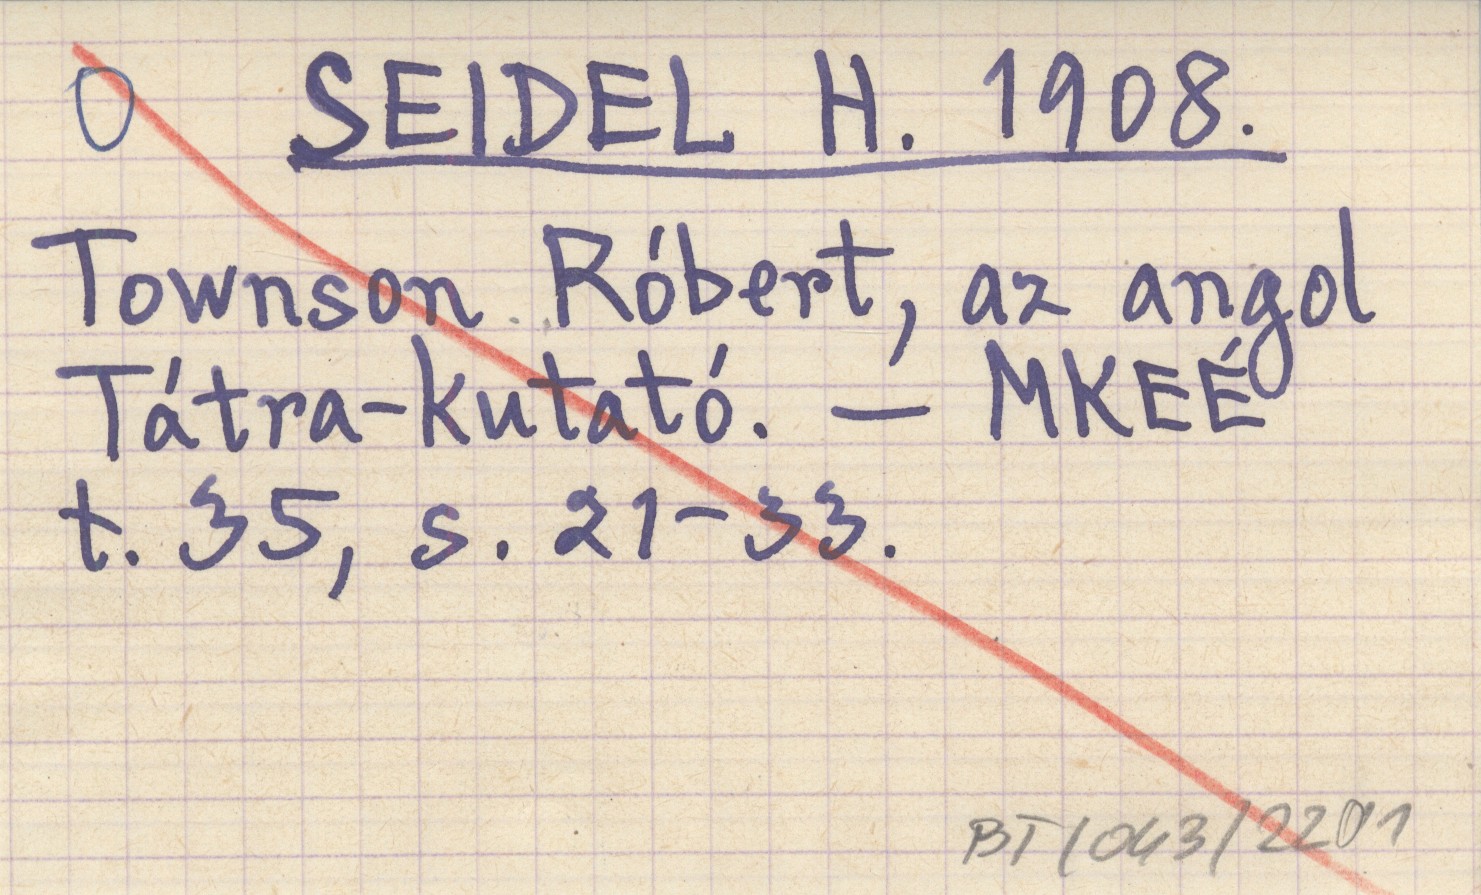 O SEIDEL H. 1908.
Townson Róbert, az angol
Tátra-kutató. — MKEÉ
t. 35, s. 21-33.
BT/043/2201